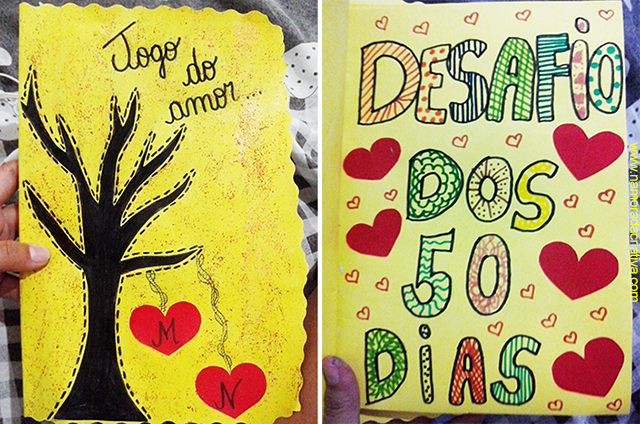 Jogo
do
amor...
M
N
DESAFiO
DOS
50
DiAS
www.namoradacriativa.com